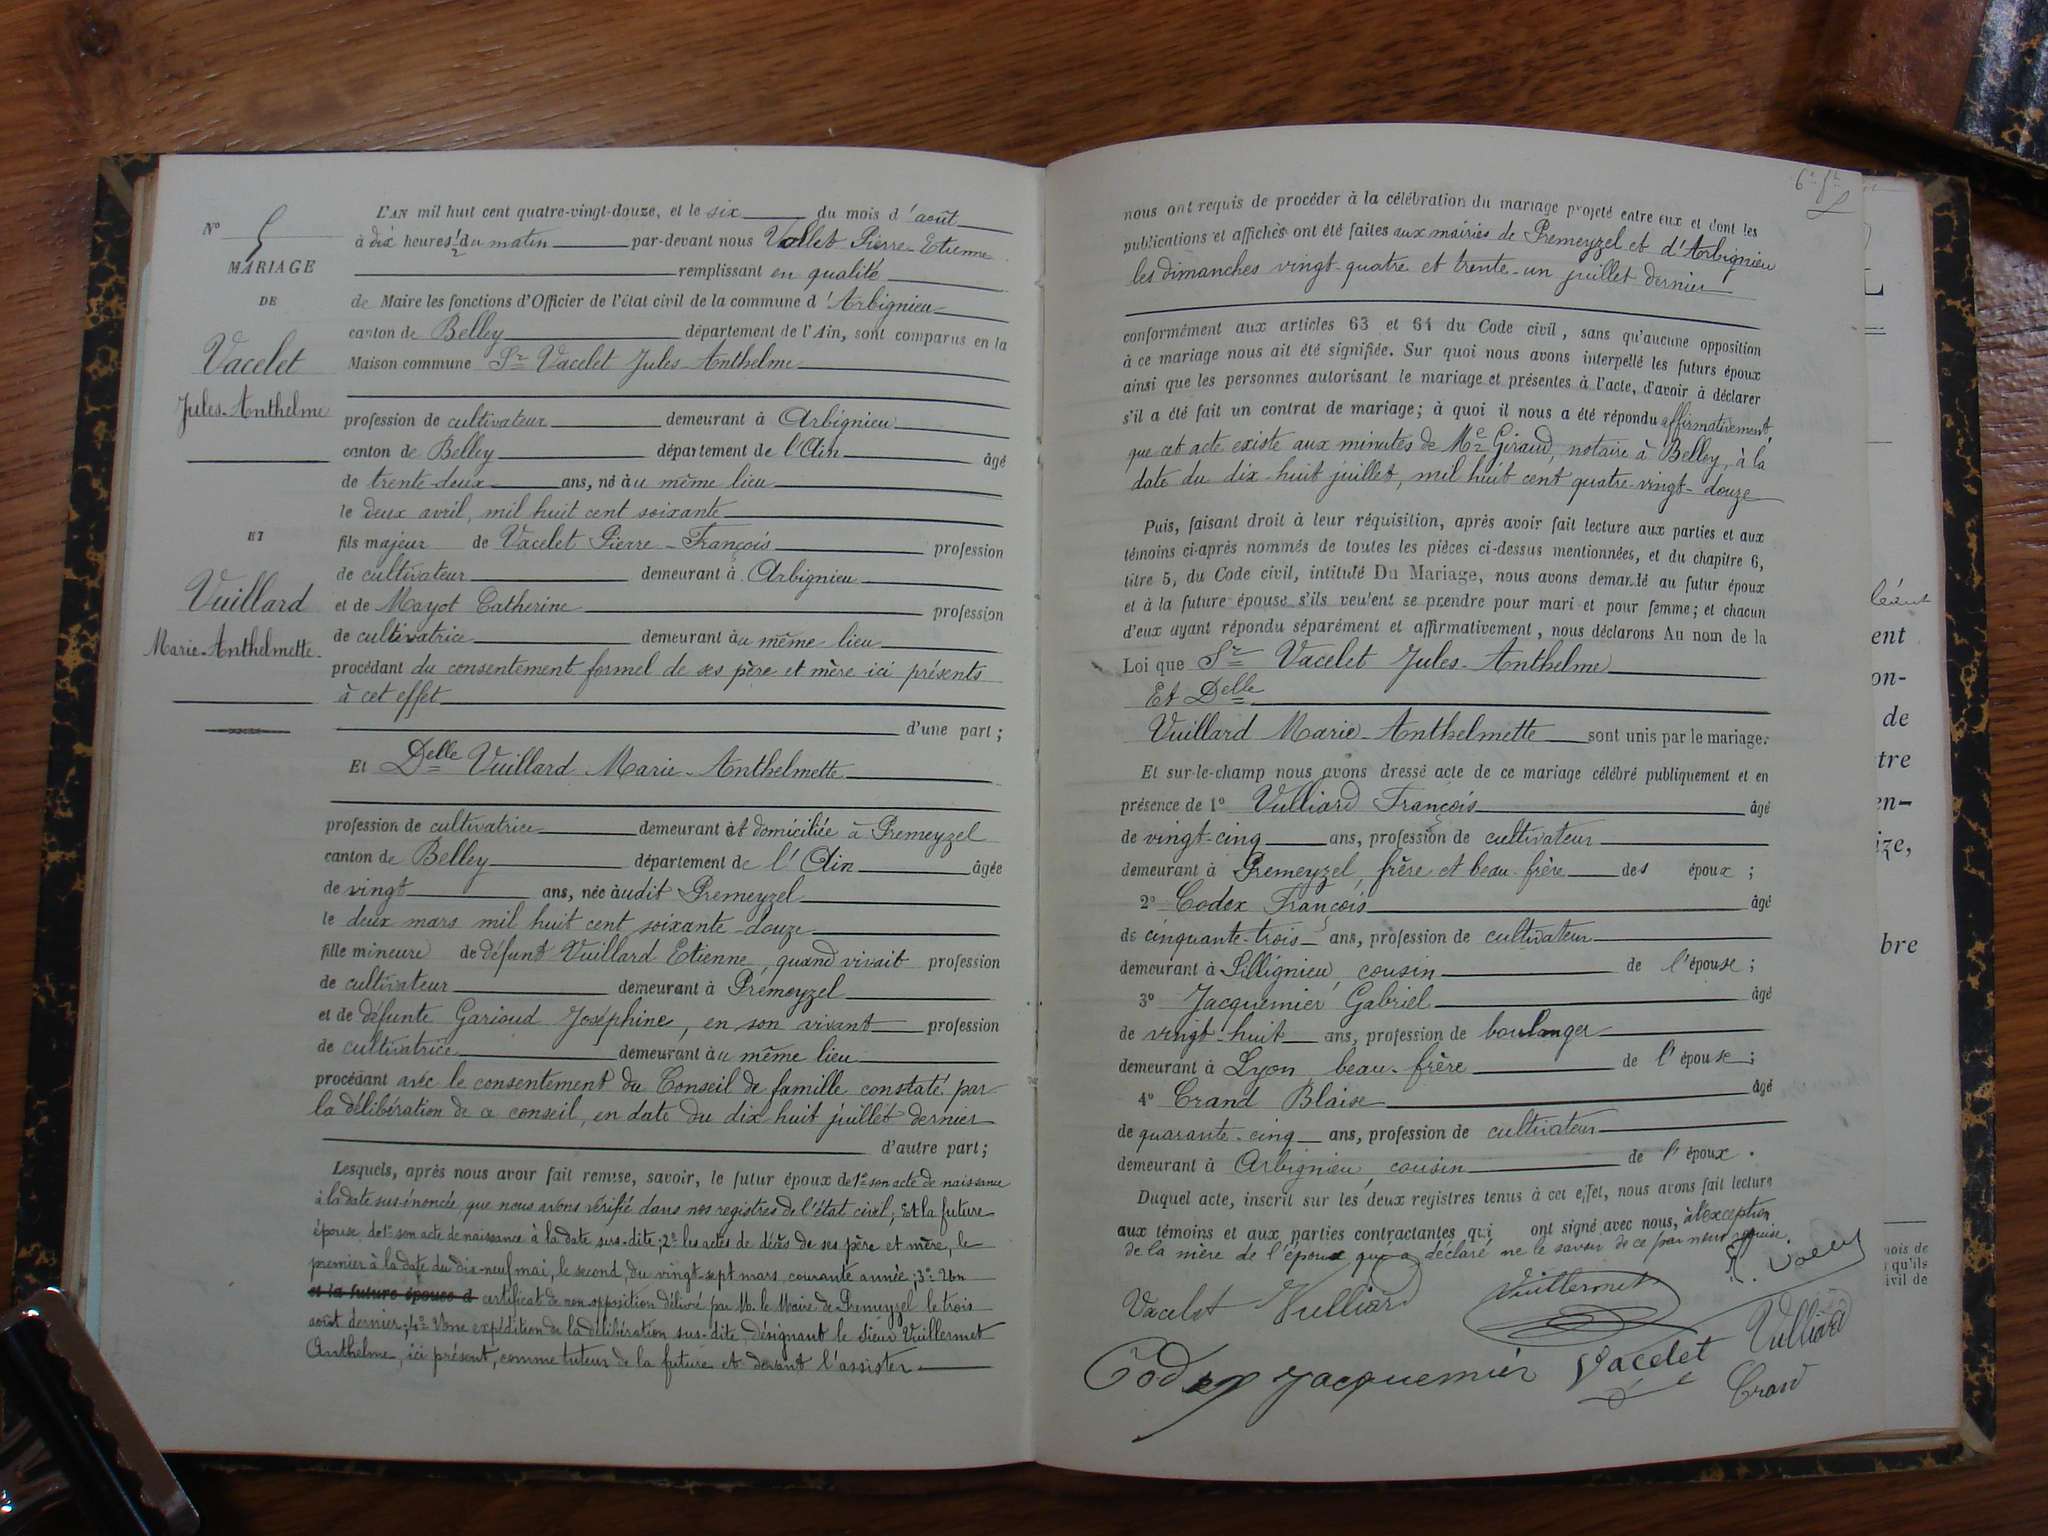 N° 5
MARIAGE
DE
Vacelet
Jules-Anthelme
ET
Vuillard
Marie-Anthelmette
L'AN mil huit cent quatre-vingt-douze, et le six du mois d'août
à dix heures ½ du matin par-devant nous Vallet Pierre-Etienne
remplissant en qualité
de Maire les fonctions d'Officier de l'état civil de la commune d'Arbignieu
canton de Belley département de l'Ain, sont comparus en la
Maison commune Sr Vacelet Jules Anthelme
profession de cultivateur demeurant à Arbignieu
canton de Belley département de l'Ain âgé
de trente-deux ans, né au même lieu
le deux avril, mil huit cent soixante
fils majeur de Vacelet Pierre-François profession
de cultivateur demeurant à Arbignieu
et de Mayot Catherine profession
de cultivatrice demeurant au même lieu
procédant du consentement formel de ses père et mère ici présents
à cet effet
d'une part;
Et Delle Vuillard Marie-Anthelmette
profession de cultivatrice demeurant et domiciliée à Premeyzel
canton de Belley département de l'Ain âgée
de vingt ans, née audit Premeyzel
le deux mars mil huit cent soixante-douze
fille mineure de défunt Vuillard Etienne, quand vivait profession
de cultivateur demeurant à Prémeyzel
et de défunte Garioud Joséphine, en son vivant profession
de cultivatrice demeurant au même lieu
procédant avec le consentement du Conseil de famille constaté par
la délibération de ce conseil, en date du dix huit juillet dernier
d'autre part;
Lesquels, après nous avoir fait remise, savoir, le futur époux de 1° son acte de naissance
à la date sus-énoncée que nous avons vérifié dans nos registres de l'état civil; Et la future
épouse, de 1° son acte de naissance à la date sus-dite; 2° les actes de décès de ses père et mère, le
premier à la date du dix-neuf mai, le second, du vingt-sept mars, courante année; 3° Un
et la future épouse d certificat de non opposition délivré par M. le Maire de Premeyzel le trois
août dernier; 4° Une expédition de la délibération sus-dite, désignant le sieur Vuillermet
Anthelme, ici présent, comme tuteur de la future et devant l'assister
nous ont requis de procéder à la célébration du mariage projeté entre eux et dont les
publications et affiches ont été faites aux mairies de Premeyzel et d'Arbignieu
les dimanches vingt-quatre et trente-un juillet dernier
conformément aux articles 63 et 64 du Code civil, sans qu'aucune opposition
à ce mariage nous ait été signifiée. Sur quoi nous avons interpellé les futurs époux
ainsi que les personnes autorisant le mariage et présentes à l'acte, d'avoir à déclarer
s'il a été fait un contrat de mariage; à quoi il nous a été répondu affirmativement,
que cet acte existe aux minutes de Me Giraud, notaire à Belley, à la
date du dix-huit juillet, mil huit cent quatre-vingt-douze
Puis, faisant droit à leur réquisition, après avoir fait lecture aux parties et aux
témoins ci-après nommés de toutes les pièces ci-dessus mentionnées, et du chapitre 6,
titre 5, du Code civil, intitulé Du Mariage, nous avons demandé au futur époux
et à la future épouse s'ils veulent se prendre pour mari et pour femme; et chacun
d'eux ayant répondu séparément et affirmativement, nous déclarons Au nom de la
Loi que Sr Vacelet Jules-Anthelme
Et Delle
Vuillard Marie-Anthelmette sont unis par le mariage.
Et sur-le-champ nous avons dressé acte de ce mariage célébré publiquement et en
présence de 1° Vulliard François âgé
de vingt-cinq ans, profession de cultivateur
demeurant à Premeyzel, frère et beau-frère des époux;
2° Codex François âgé
de cinquante-trois ans, profession de cultivateur
demeurant à Sillignieu, cousin de l'épouse;
3° Jacquemier Gabriel âgé
de vingt-huit ans, profession de boulanger
demeurant à Lyon beau-frère de l'épouse;
4° Crand Blaise âgé
de quarante-cinq ans, profession de cultivateur
demeurant à Arbignieu, cousin de l'époux.
Duquel acte, inscrit sur les deux registres tenus à cet effet, nous avons fait lecture
aux témoins et aux parties contractantes qui ont signé avec nous, à l'exception
de la mère de l'époux qui a déclaré ne le savoir de ce par nous requise
Vacelet Vulliard Vuillermet
Codex Jacquemier Vacelet Vulliard
Crand